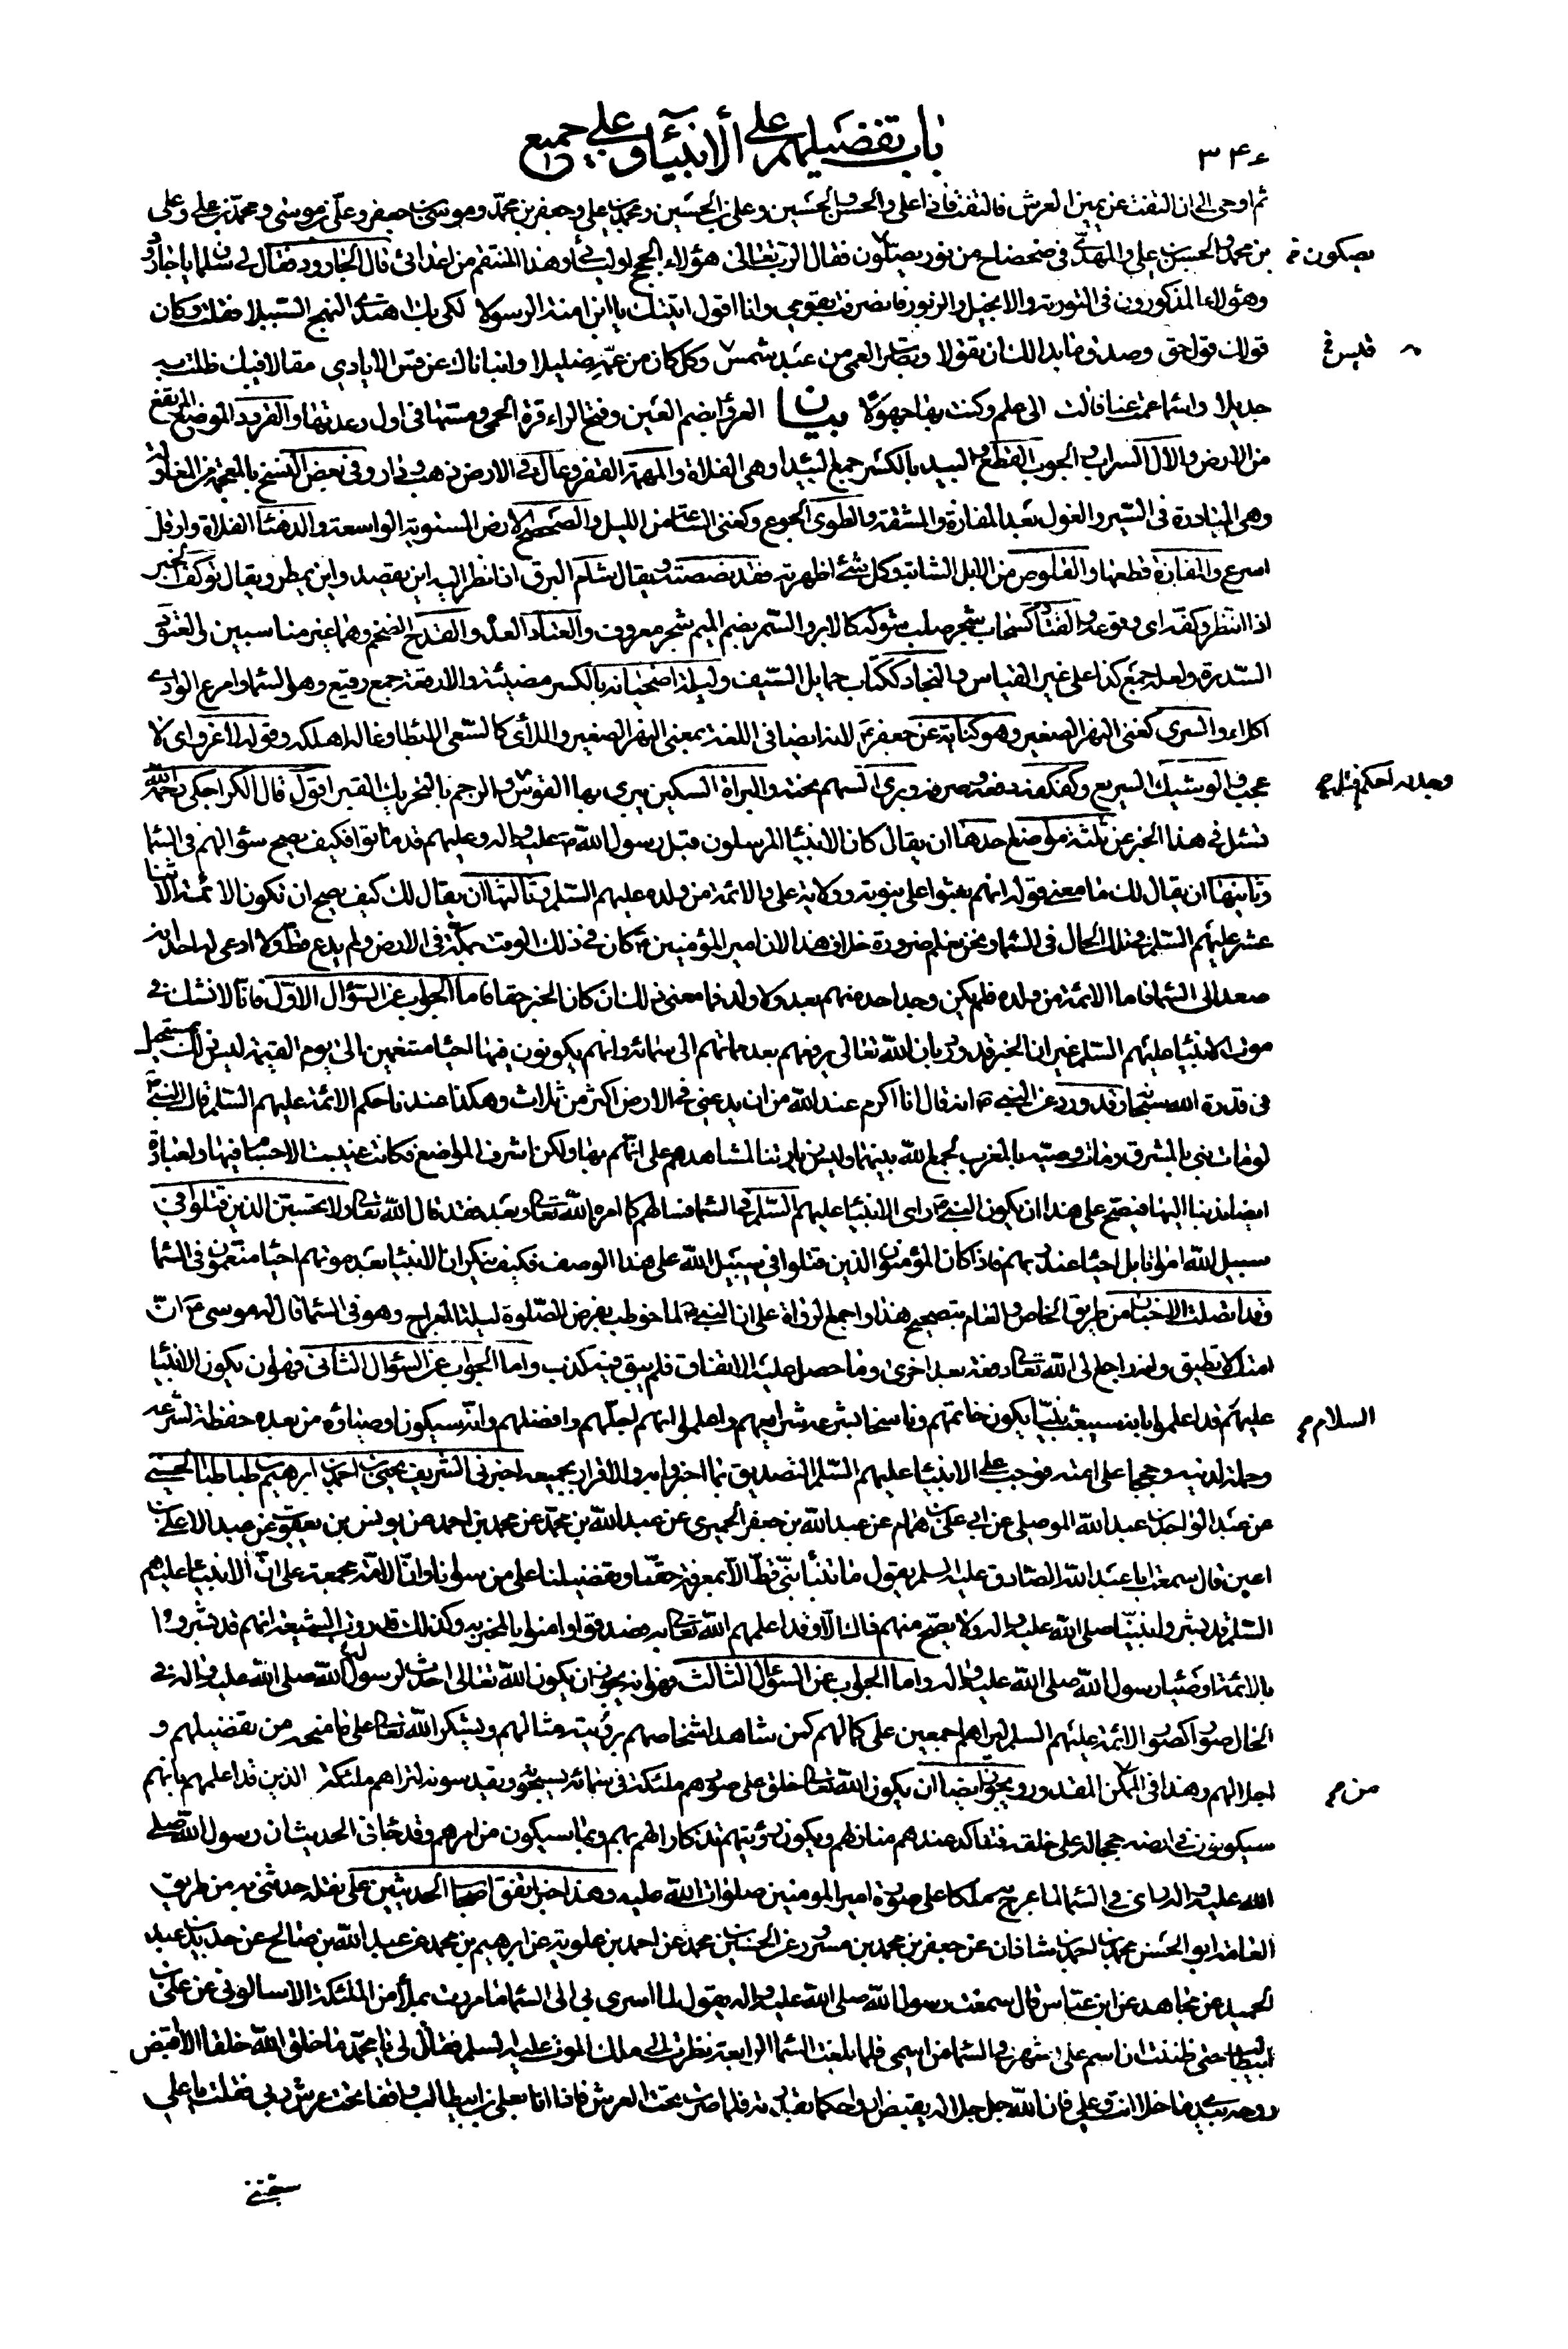 باب تفضيلهم على الأنبياء و على جميع
٣٤٠
ثم اوحى الى ان التفت عن يمين العرش فالتفت فاذا على والحسن والحسين وعلى بن الحسين ومحمد بن على وجعفر بن محمد وموسى بن جعفر وعلى بن موسى ومحمد بن على وعلى
بن محمد والحسن بن على والمهدى فى ضحضاح من نور يصلون فقال الرب تعالى هؤلاء الحجج لوليائى وهذا المنتقم من اعدائى قال الجارود فقال لى سلمان يا جارود
يصكون خ
وهؤلاء المذكورون فى التورية والانجيل والزبور فانصرفت بقومى وانا اقول اتيتك يا ابن امنة الرسولا لكى بك اهتدى النهج السبيلا فقلت وكان
قولك قول حق وصدق ما بدا لك ان تقولا وبصرت العمى من عبد شمس وكل كان من عمه ضليلا وانبأناك عن قس الايادى مقالا فيك ظلت به
قيس خ
جديلا واسماء عمت عنا فالت الى علم وكنت بها جهولا بيان العرواء بضم العين وفتح الراء قرة الحمى ومسها فى اول رعدتها والقردد الموضع المرتفع
من الارض والال السراب والجوب القطع والبيد بالكسر جمع البيداء وهى الفلاة والمهمة القفر وعال فى الارض ذهب ودار وفى بعض النسخ بالمعجمة من المغاولة
وهى المبادرة فى السير والغول بعد المفازة والمشقة والطوى الجوع وكغنى الساعة من الليل والصحصح الارض المستوية الواسعة والدهناء الفلاة وارفل
اسرع والمفازة قطعها والقلوص من الابل الشابة وكل شئ اظهرته فقد نصصته ويقال شام البرق اذا نظر اليه اين يقصد واين يمطر ويقال توكف الخبر
اذا انتظر وكفه اى وقوعه والقتاد كسحاب شجر صلب شوكه كالابر والسمر بضم الميم شجر معروف والعتاد العدة والقدح الضخم وهما غير مناسبين والعتود
السدرة ولعله جمع كذا على غير القياس والنجاد ككتاب حمايل السيف وليلة اضحيانة بالكسر مضيئة والارقعة جمع رقيع وهو السماء وامرع الوادى
اكلاء والسرى كغنى النهر الصغير وهو كناية عن جعفر لانه ايضا فى اللغة بمعنى النهر الصغير واللأى كالسعى الابطاء وغاله اهلكه وقوله لا غرو اى لا
عجب والوشيك السريع وكفكفه دفعه وصرفه وبرى السهم نحته والبراة السكين يبرى بها القوس والرجم بالتحريك القبر اقول قال الكراجكى رحمه الله
تسئل فى هذا الخبر عن ثلثة مواضع احدها ان يقال كان الانبياء المرسلون قبل رسول الله ص عليه وآله وعليهم قد ماتوا فكيف يصح سؤالهم فى السماء
وثانيها ان يقال لك ما معنى قوله انهم بعثوا على نبوته وولاية على والائمة من ولده عليهم السلم وثالثها ان يقال لك كيف يصح ان تكون الائمة الاثنا
عشر عليهم السلم فى تلك الحال فى السماء ونحن نعلم ضرورة خلاف هذا لان امير المؤمنين ع كان فى ذلك الوقت بمكة فى الارض ولم يدع قط ولا ادعى له احد انه
صعد الى السماء فاما الائمة من ولده فلم يكن وجد احد منهم بعد ولا ولد فما معنى ذلك ان كان الخبر حقا فاما الجواب عن السؤال الاول فانا لا نشك فى
موت الانبياء عليهم السلم غير ان الخبر قد ورد بان الله تعالى يرفعهم بعد مماتهم الى سمائه وانهم يكونون فيها احياء متنعمين الى يوم القيمة ليس ذلك بمستحيل
فى قدرة الله سبحانه وقد ورد عن النبى ص انه قال انا اكرم عند الله من ان يدعنى فى الارض اكثر من ثلاث وهكذا عندنا حكم الائمة عليهم السلم قال النبى ص
لو مات نبى بالمشرق ومات وصيه بالمغرب لجمع الله بينهما وليس زيارتنا لمشاهدهم على انهم بها ولكن لشرف المواضع فكانت غيبت الاجسام فيها ولعبادة
ايضا ندبنا اليها فيصح على هذا ان يكون النبى ص راى الانبياء عليهم السلم فى السماء فسألهم كما امره الله تعالى وبعد فقد قال الله تعالى ولا تحسبن الذين قتلوا فى
سبيل الله امواتا بل احياء عند ربهم فاذا كان المؤمنون الذين قتلوا فى سبيل الله على هذا الوصف فكيف ينكر ان الانبياء بعد موتهم احياء منعمون فى السماء
وقد اتصلت الاخبار من طريق الخاص والعام بتصحيح هذا واجمع الرواة على ان النبى ص لما خوطب بفرض الصلوة ليلة المعراج وهو فى السماء قال له موسى ع ان
امتك لا تطيق وانه راجع الى الله تعالى دفعة بعد اخرى وما حصل عليه الاتفاق فلم يبق فيه كذب واما الجواب عن السؤال الثانى فهو ان يكون الانبياء
عليهم قد اعلموا بانه سيبعث نبيا يكون خاتمهم وناسخا بشرعه شرايعهم واعلموا انه اجلهم وافضلهم وانه سيكون اوصياؤه من بعده حفظة لشرعه
السلام صح
وحملة لدينه وحججا على امته فوجب على الانبياء عليهم السلم التصديق بما اخبروا به والاقرار بجميعه اخبرنى الشريف يحيى بن احمد بن ابرهيم طباطبا الحسينى
عن عبد الواحد بن عبد الله الموصلى عن ابى على بن همام عن عبد الله بن جعفر الحميرى عن عبد الله بن محمد عن محمد بن احمد عن يونس بن يعقوب عن عبد الاعلى بن
اعين قال سمعت ابا عبد الله الصادق عليه السلم يقول ما تنبأ نبى قط الا بمعرفة حقنا وبتفضيلنا على من سوانا وان الامة مجمعة على ان الانبياء عليهم
السلم قد بشروا بنبينا صلى الله عليه وآله ولا يصح منهم ذلك الا وقد اعلمهم الله تعالى به فصدقوا وامنوا بالمخبر به وكذلك قد روت الشيعة انهم قد بشروا
بالائمة اوصياء رسول الله صلى الله عليه وآله واما الجواب عن السؤال الثالث فهو انه يجوز ان يكون الله تعالى احدث لرسول الله صلى الله عليه وآله فى
الحال صورا كصور الائمة عليهم السلم ليراهم اجمعين على كمالهم كمن شاهد اشخاصهم برؤيته مثالهم ويشكر الله تعالى على ما منحه من تفضيلهم و
اجلالهم وهذا فى الممكن المقدور ويجوز ايضا ان يكون الله تعالى خلق على صورهم ملئكة فى سمائه يسبحونه ويقدسونه لتراهم ملئكته الذين قد اعلمهم بانهم
من صح
سيكونون فى ارضه حججا له على خلقه فتتأكد عندهم منازلهم ويكون رؤيتهم تذكارا لهم بهم وبما سيكون من امرهم وقد جاء فى الحديث ان رسول الله صلى
الله عليه وآله راى فى السماء لما عرج به ملكا على صورة امير المومنين صلوات الله عليه وهذا خبر اتفق اصحاب الحديثين على نقله حدثنى به من طريق
العامة ابو الحسن محمد بن احمد بن شاذان عن جعفر بن محمد بن مسرور عن الحسين بن محمد عن احمد بن علوية عن ابرهيم بن محمد عن عبد الله بن صالح عن حديد بن عبد
الحميد عن مجاهد عن ابن عباس قال سمعت رسول الله صلى الله عليه وآله يقول لما اسرى بى الى السماء ما مررت بملأ من الملئكة الا سالونى عن على بن
ابيطالب حتى ظننت ان اسم على اشهر فى السماء من اسمى فلما بلغت السماء الرابعة نظرت الى ملك الموت عليه السلم فقال لى يا محمد ما خلق الله خلقا الا اقبض
روحه بيدى ما خلا انت وعلى فان الله جل جلاله يقبض ارواحكما بقدرته فلما صرت تحت العرش فاذا انا بعلى بن ابيطالب واقفا تحت عرش ربى فقلت يا على
سبقتنى